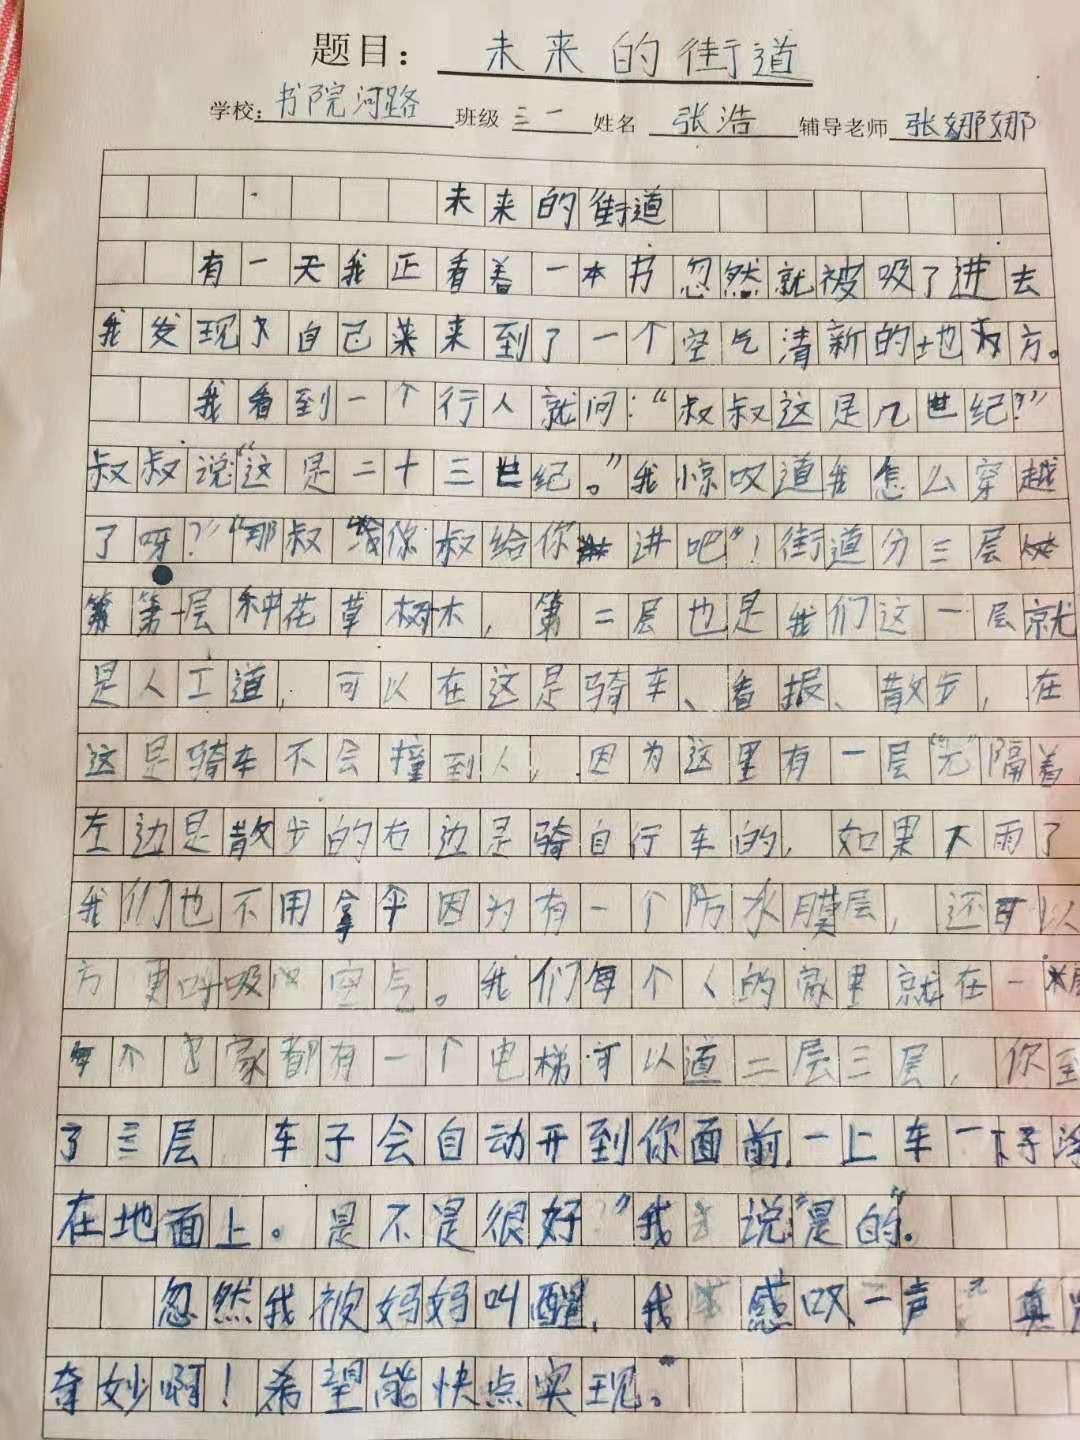 题目：未来的街道
学校：书院河路 班级 三一 姓名 张浩 辅导老师 张娜娜
未来的街道
有一天我正看着一本书忽然就被吸了进去
我发现自己来到了一个空气清新的地方。
我看到一个行人就问：“叔叔这是几世纪？”
叔叔说“这是二十三世纪。”我惊叹道我怎么穿越
了呀？”“那叔叔给你进吧”！街道分三层
第一层种花草树木，第二层也是我们这一层就
是人工道，可以在这是骑车、看报、散步，在
这是骑车不会撞到人，因为这里有一层“光”隔着
左边是散步的右边是骑自行车的，如果下雨了
我们也不用拿伞因为有一个防水膜层，还可以
方更呼吸空气。我们每个人的家里就在一层
每个家都有一个电梯可以道二层三层，你到
了三层 车子会自动开到你面前，一上车一下子浮
在地面上。是不是很好”我说：“是的”。
忽然我被妈妈叫醒，我感叹一声 真
奇妙啊！希望能快点实现。”